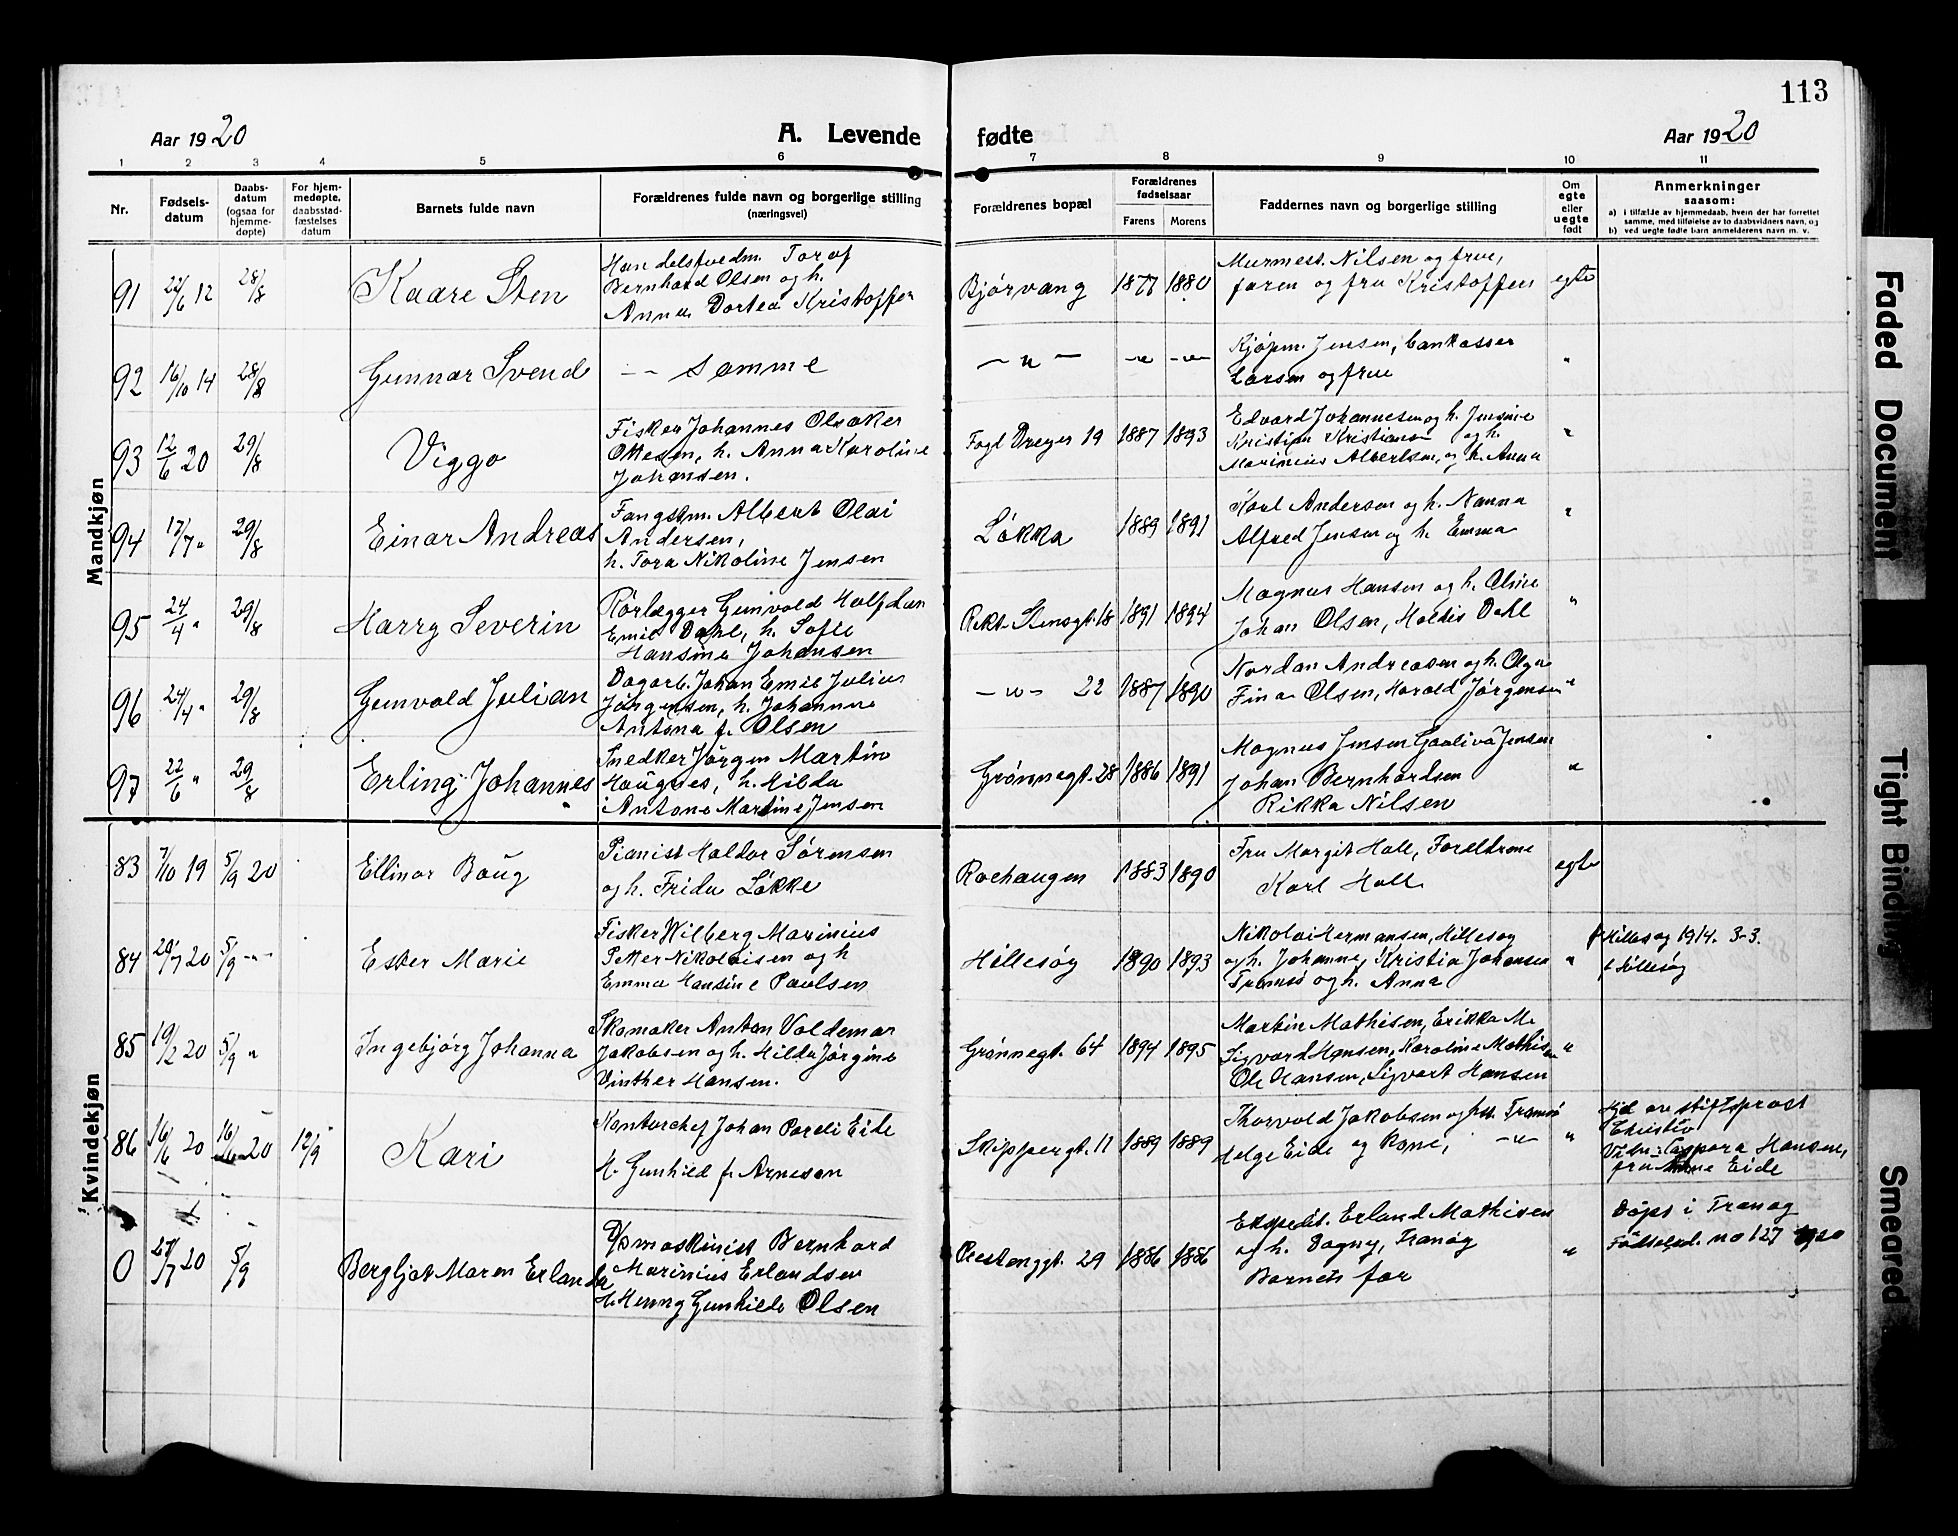 113
Aar 1920
A. Levende fødte
Aar 1920
1 2 3 4 5 6 7 8 9 10 11
Nr.
Fødsels-
datum
Daabs-
datum
(ogsaa for
hjemme-
døpte)
For hjem-
medøpte,
daabsstad-
fæstelses
datum
Barnets fulde navn
Forældrenes fulde navn og borgerlige stilling
(næringsvei)
Forældrenes bopæl
Forældrenes
fødselsaar
Farens Morens
Faddernes navn og borgerlige stilling
Om
egte
eller
uegte
født
Anmerkninger
saasom:
a) i tilfælde av hjemmedaab, hvem der har forrettet
samme, med tilføielse av to daabsvidners navn, og
b) ved uegte fødte barn anmelderens navn m. v.
Mandkjøn
91 22/6 12 28/8 Kaare Sten
Bernhard Olsen og h.
Anna Dortea Kristoffer
Bjørvang 1877 1880
Murmest. Nilsen og frue,
faren og fru Kristoffers
egte
92 16/10 14 28/8 Gunnar Svend
-- samme
— " — — " — — " —
Kjøpm. Jensen,
Larsen og frue
"
93 12/6 20 29/8 Viggo
Fisker Johannes Olsaker
Ottesen, h. Anna Karoline
Johansen.
Fogd Dreyer 19 1887 1893
Edvard Johannesen og h. Jensine
Kristian Kristiansen og h.
Marinius Albertsen, og h. Anna
"
94 17/7 " 29/8 Einar Andreas
Fangstm. Albert Olai
Andersen,
h. Tora Nikoline Jensen
Løkka 1889 1891
Karl Andersen og h. Nanna
Alfred Jensen og h. Emma
"
95 24/4 " 29/8 Harry Severin
Rørlægger Gunvald Halfdan
Emil Dahl, h. Sofie
Hansine Johansen
Rekt. Stensgt. 18 1891 1894
Magnus Hansen og h. Oline
Johan Olsen, Haldis Dahl
"
96 24/4 " 29/8 Gunvald Julian
Dagarb. Johan Emil Julius
Jørgensen, h. Johanne
Antona f. Olsen
— " — 22 1887 1890
Nordan Andreasen og h. Olga
Fina Olsen, Harald Jørgensen
"
97 22/6 " 29/8 Erling Johannes
Snedker Jørgen Martin
Haugnes, h. Hilda
Antone Martine Jensen
Grønnegt. 28 1886 1891
Magnus Jensen Jensen
Johan Bernhardsen
Rikka Nilsen
"
Kvindekjøn
83 7/10 19 5/9 20 Ellinor Baug
Pianist Haldor Sørensen
og h. Frida Løkke
Rochaugen 1883 1890
Fru Margit Hall, Foreldrene
Karl Hall
egte
84 29/7 20 5/9 -"- Ester Marie
Fisker Wilberg Marinius
Petter Nikolaisen og h
Emma Hansine Paulsen
Hillesøy 1890 1893
Nikolai Hermansen, Hillesøy
og h. Johanne, Kristian Johansen
Tromsø og h. Anna
"
Hillesøy 1914. 3-3.
85 19/2 20 5/9 " Ingebjørg Johanna
Skomaker Anton Valdemar
Jakobsen og h. Hilda Jørgine
Vinther Hansen.
Grønnegt. 64 1894 1895
Martin Mathisen, Erikka M.
Sigvard Hansen, Karoline Mathisen
Ole Hansen, Sigvart Hansen
"
86 16/6 20 16/6 20 12/9 Kari
Kontorchef Johan Pareli Eide
h. Gunhild f. Arnesen
Skippergt. 11 1889 1889
Thorvald Jakobsen og hst. Tromsø
Helge Eide og Kone, — " —
"
Hjd av stiftsprost
Vidn: Caspara Hansen,
fru Eide
0 27/7 20 5/9 Bergljot Maren Erlanda
D/s maskinist Bernhard
Marinius Erlandsen
h. Henny Gunhilde Olsen
Prestenggt. 29 1886 1886
Ekspedit. Erland Mathisen
og h. Dagny, Tranøy
Barnets far
"
Døpt i Tranøy
Fødselsd. no 127 1920
Faded Document
Tight Binding
Smeared